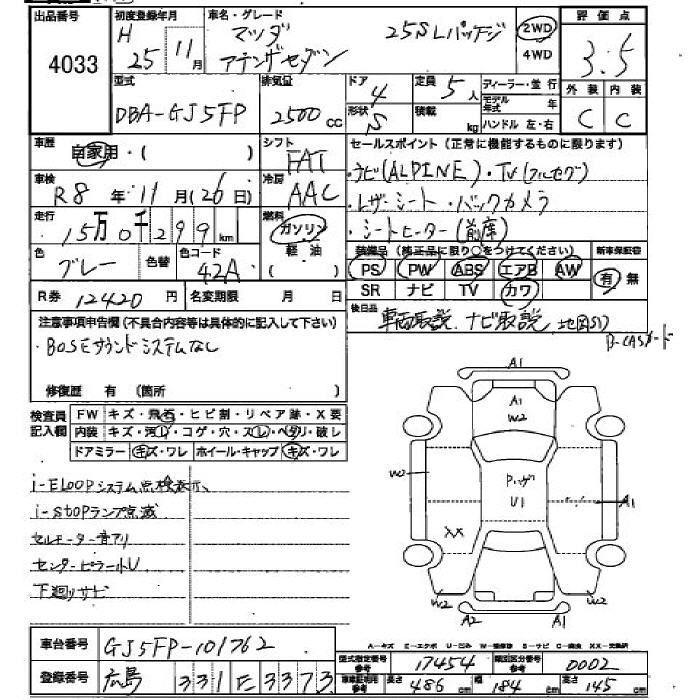 出品番号 初度登録年月 車名・グレード 評価点
4033 H 25年 11月 マツダ アテンザセダン 25S Lパッケージ 2WD 4WD 3.5
外装 内装
C C
型式 排気量 ドア 定員 ディーラー・並行
DBA-GJ5FP 2500cc 4 5人 モデル年式 年
形状 積載 kg ハンドル 左・右
S
車歴 シフト セールスポイント(正常に機能するものに限ります)
自家用・( ) FAT ・ナビ(ALPINE)・TV(フルセグ)
車検 冷房 ・レザーシート・バックカメラ
R8年 11月(26日) AAC ・シートヒーター(前席)
走行 燃料
15万0千299km ガソリン 軽油 ( )
色 色替 色コード 装備品(純正品に限り○をつけてください) 新車保証書
グレー 42A PS PW ABS エアB AW 有・無
SR ナビ TV カワ
R券 12420円 名変期限 月 日
後日品 車両取説、ナビ取説 地図SD B-CASカード
注意事項申告欄(不具合内容等は具体的に記入して下さい)
・BOSEサウンドシステムなし
修復歴 有(箇所 )
検査員記入欄 FW キズ・飛石・ヒビ割・リペア跡・X要
内装 キズ・汚レ・コゲ・穴・スレ・ヘタリ・破し
ドアミラー キズ・ワレ ホイール・キャップ キズ・ワレ
i-ELOOPシステム点検表示、
i-stopランプ点滅
セルモーター音アリ
センターピラー小U
下廻りサビ
A1
A1
W2
W2
Pハゲ
U1
A1
XX
W2
W2
A2
A1
A-キズ E-エクボ U-凹み W-補修跡 S-サビ C-腐食 XX-交換済
車台番号 GJ5FP-101762
登録番号 広島 331 E 3373
型式指定番号 参考 17454 類別区分番号 参考 0002
車車証明用 参考 長さ 486cm 幅 184cm 高さ 145cm